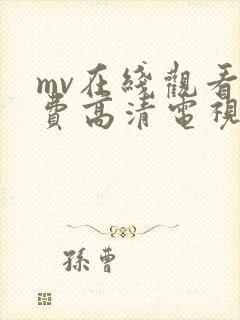 mv在綫觀看
費高清電視
孫曹